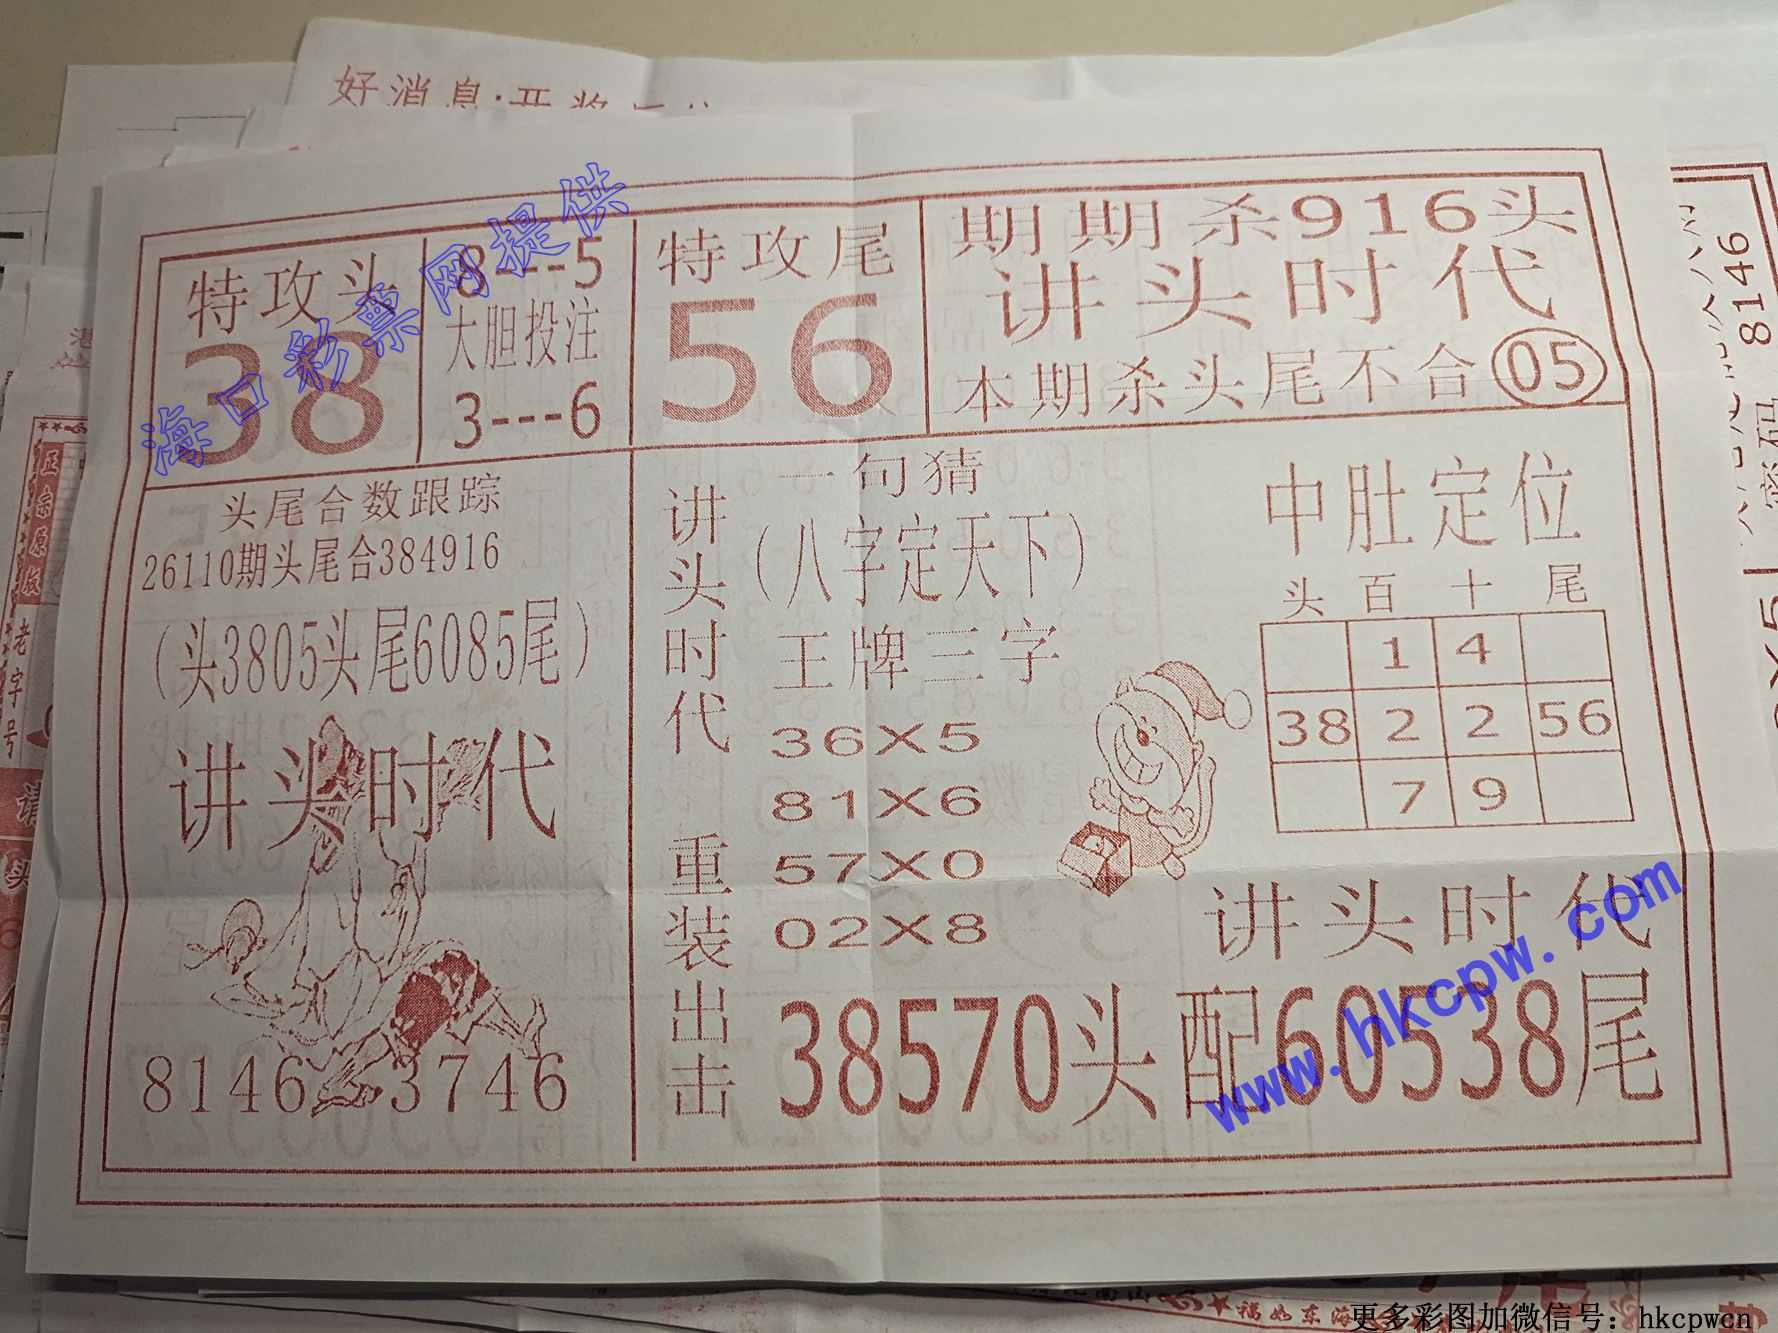 好消息:开奖
期期杀916头
讲头时代
本期杀头尾不合 05
特攻头
38
8---5
大胆投注
3---6
特攻尾
56
海口彩票网提供
头尾合数跟踪
26110期头尾合384916
(头3805头尾6085尾)
讲头时代
8146 3746
讲头时代 重装出击
一句猜
(八字定天下)
王牌三字
36X5
81X6
57X0
02X8
中肚定位
头 百 十 尾
1 4
38 2 2 56
7 9
讲头时代
38570头 配60538尾
www.hkcpw.com
正宗原版
老字号
8146
密码
福如东海
更多彩图加微信号: hkcpwcn